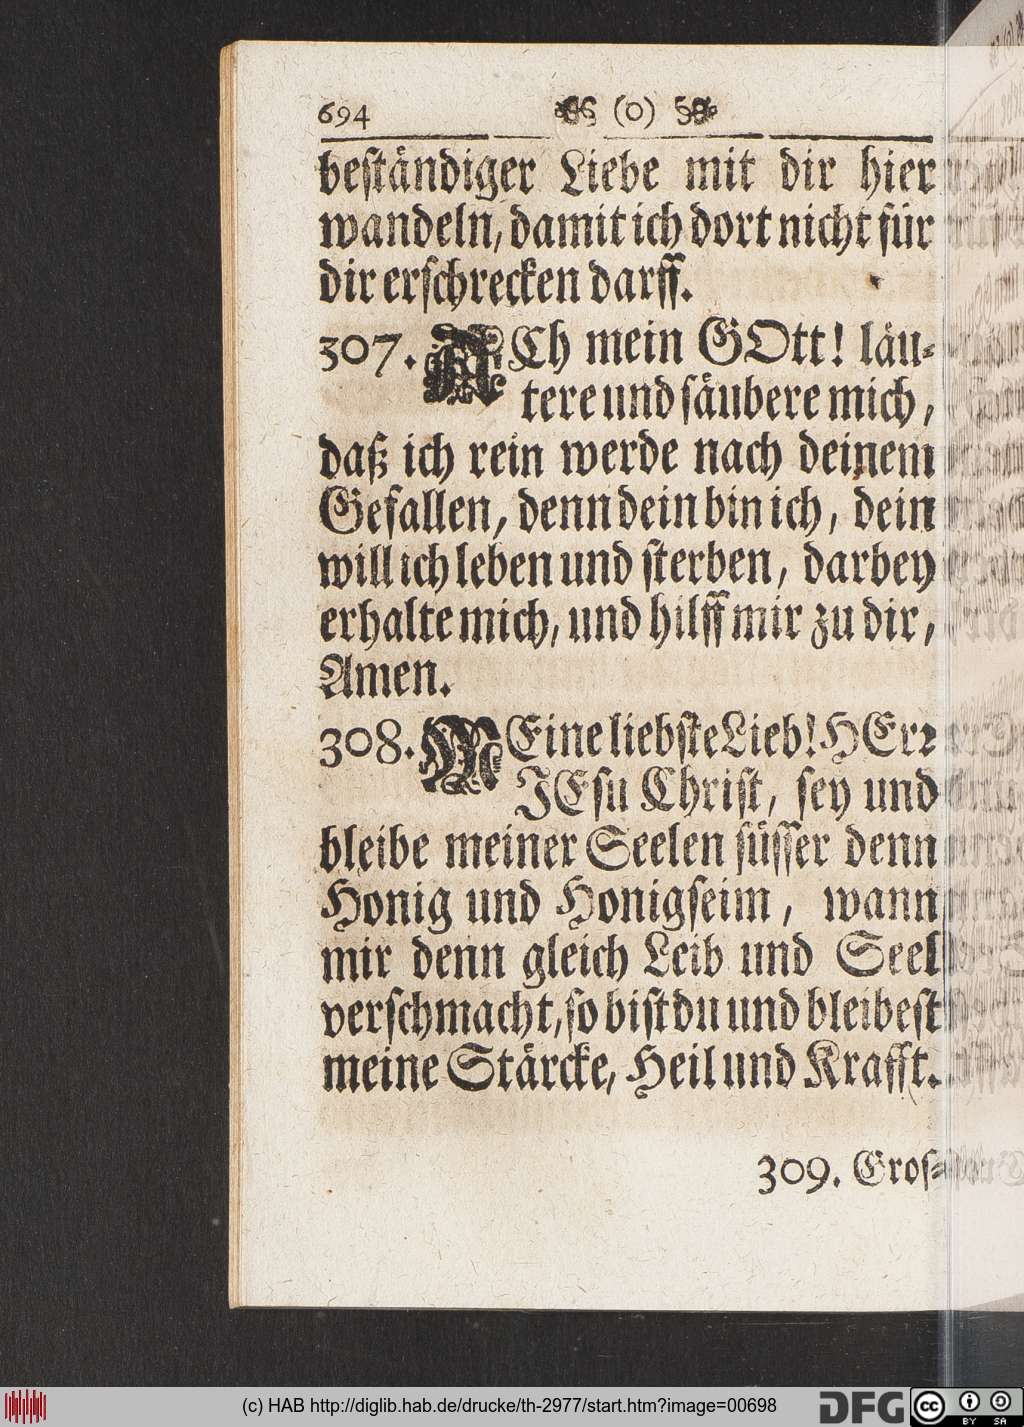 694 (o)
beständiger Liebe mit dir hier
wandeln, damit ich dort nicht für
dir erschrecken darff.
307. ACh mein GOtt! läu-
tere und säubere mich,
daß ich rein werde nach deinem
Gefallen, denn dein bin ich, dein
will ich leben und sterben, darbey
erhalte mich, und hilff mir zu dir,
Amen.
308. MEine liebste Lieb! HErr
JEsu Christ, sey und
bleibe meiner Seelen süsser denn
Honig und Honigseim, wann
mir denn gleich Leib und Seel
verschmacht, so bist du und bleibest
meine Stärcke, Heil und Krafft.
309. Gros-
(c) HAB http://diglib.hab.de/drucke/th-2977/start.htm?image=00698
DFG
cc BY SA